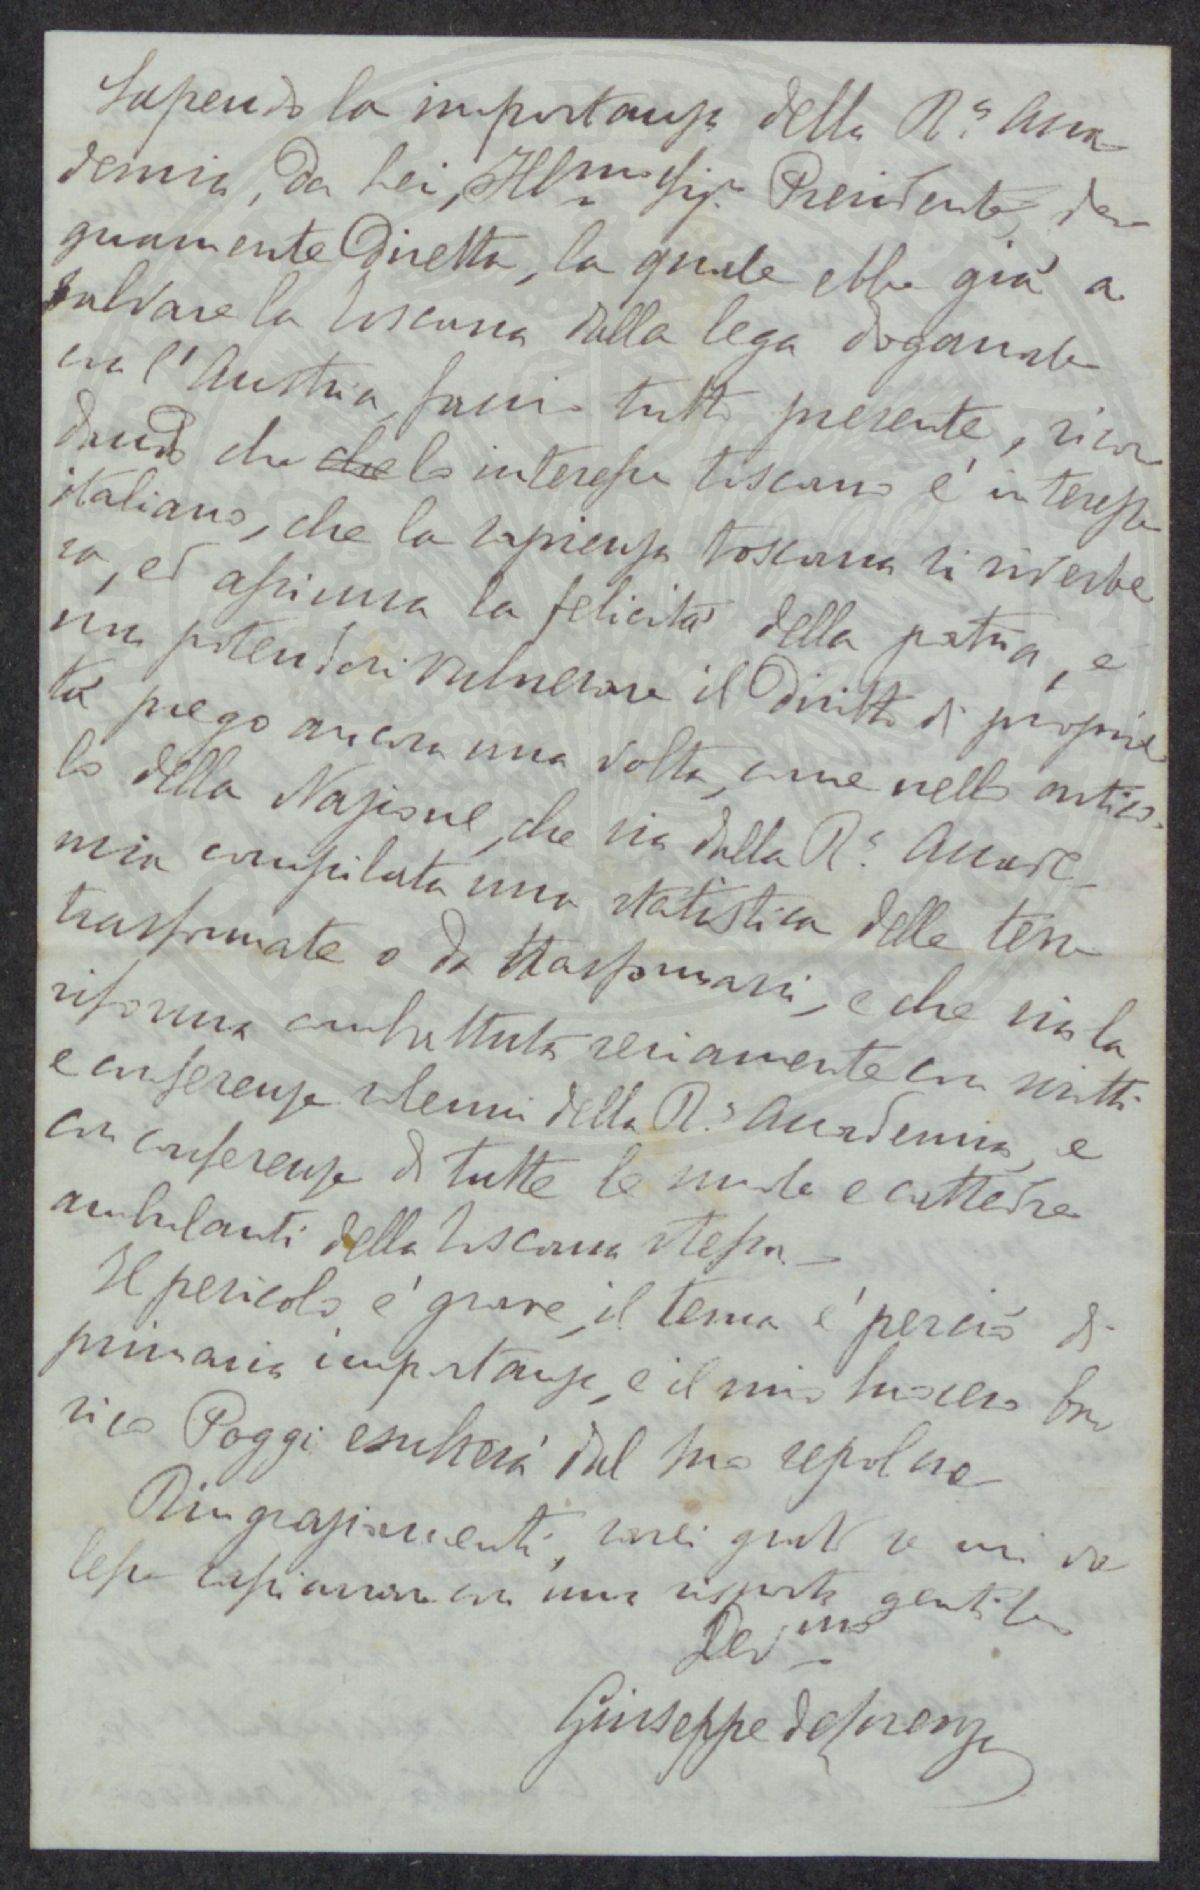 Sapendo la importanza della R.ª Acca-
demia, da Lei, Ill.mo Sig.r Presidente, de-
gnamente diretta, la quale ebbe già a
salvare la Toscana dalla lega doganale
con l'Austria, faccio tutto presente, ricor
dando che che lo interesse toscano é interesse
italiano, che la sapienza toscana si riverbe
ra, ed assicura la felicità della patria, e
non potendosi vulnerare il diritto di proprie
tà prego ancora una volta, come nello artico-
lo della Nazione, che sia dalla R.ª Accade-
mia compilata una statistica delle terre
trasformate o da trasformarsi, e che sia la
riforma combattuta seriamente con scritti
e conferenze solenni della R.ª Accademia, e
con conferenze di tutte le scuole e cattedre
ambulanti della Toscana stessa.
Il pericolo é grave, il tema é perciò di
primaria importanza, e il mio suocero En
rico Poggi esulterà dal suo sepolcro
Ringraziamenti, sarei grato se mi vo
lesse con una risposta gentile
Dev.mo
Giuseppe de Lorenzo